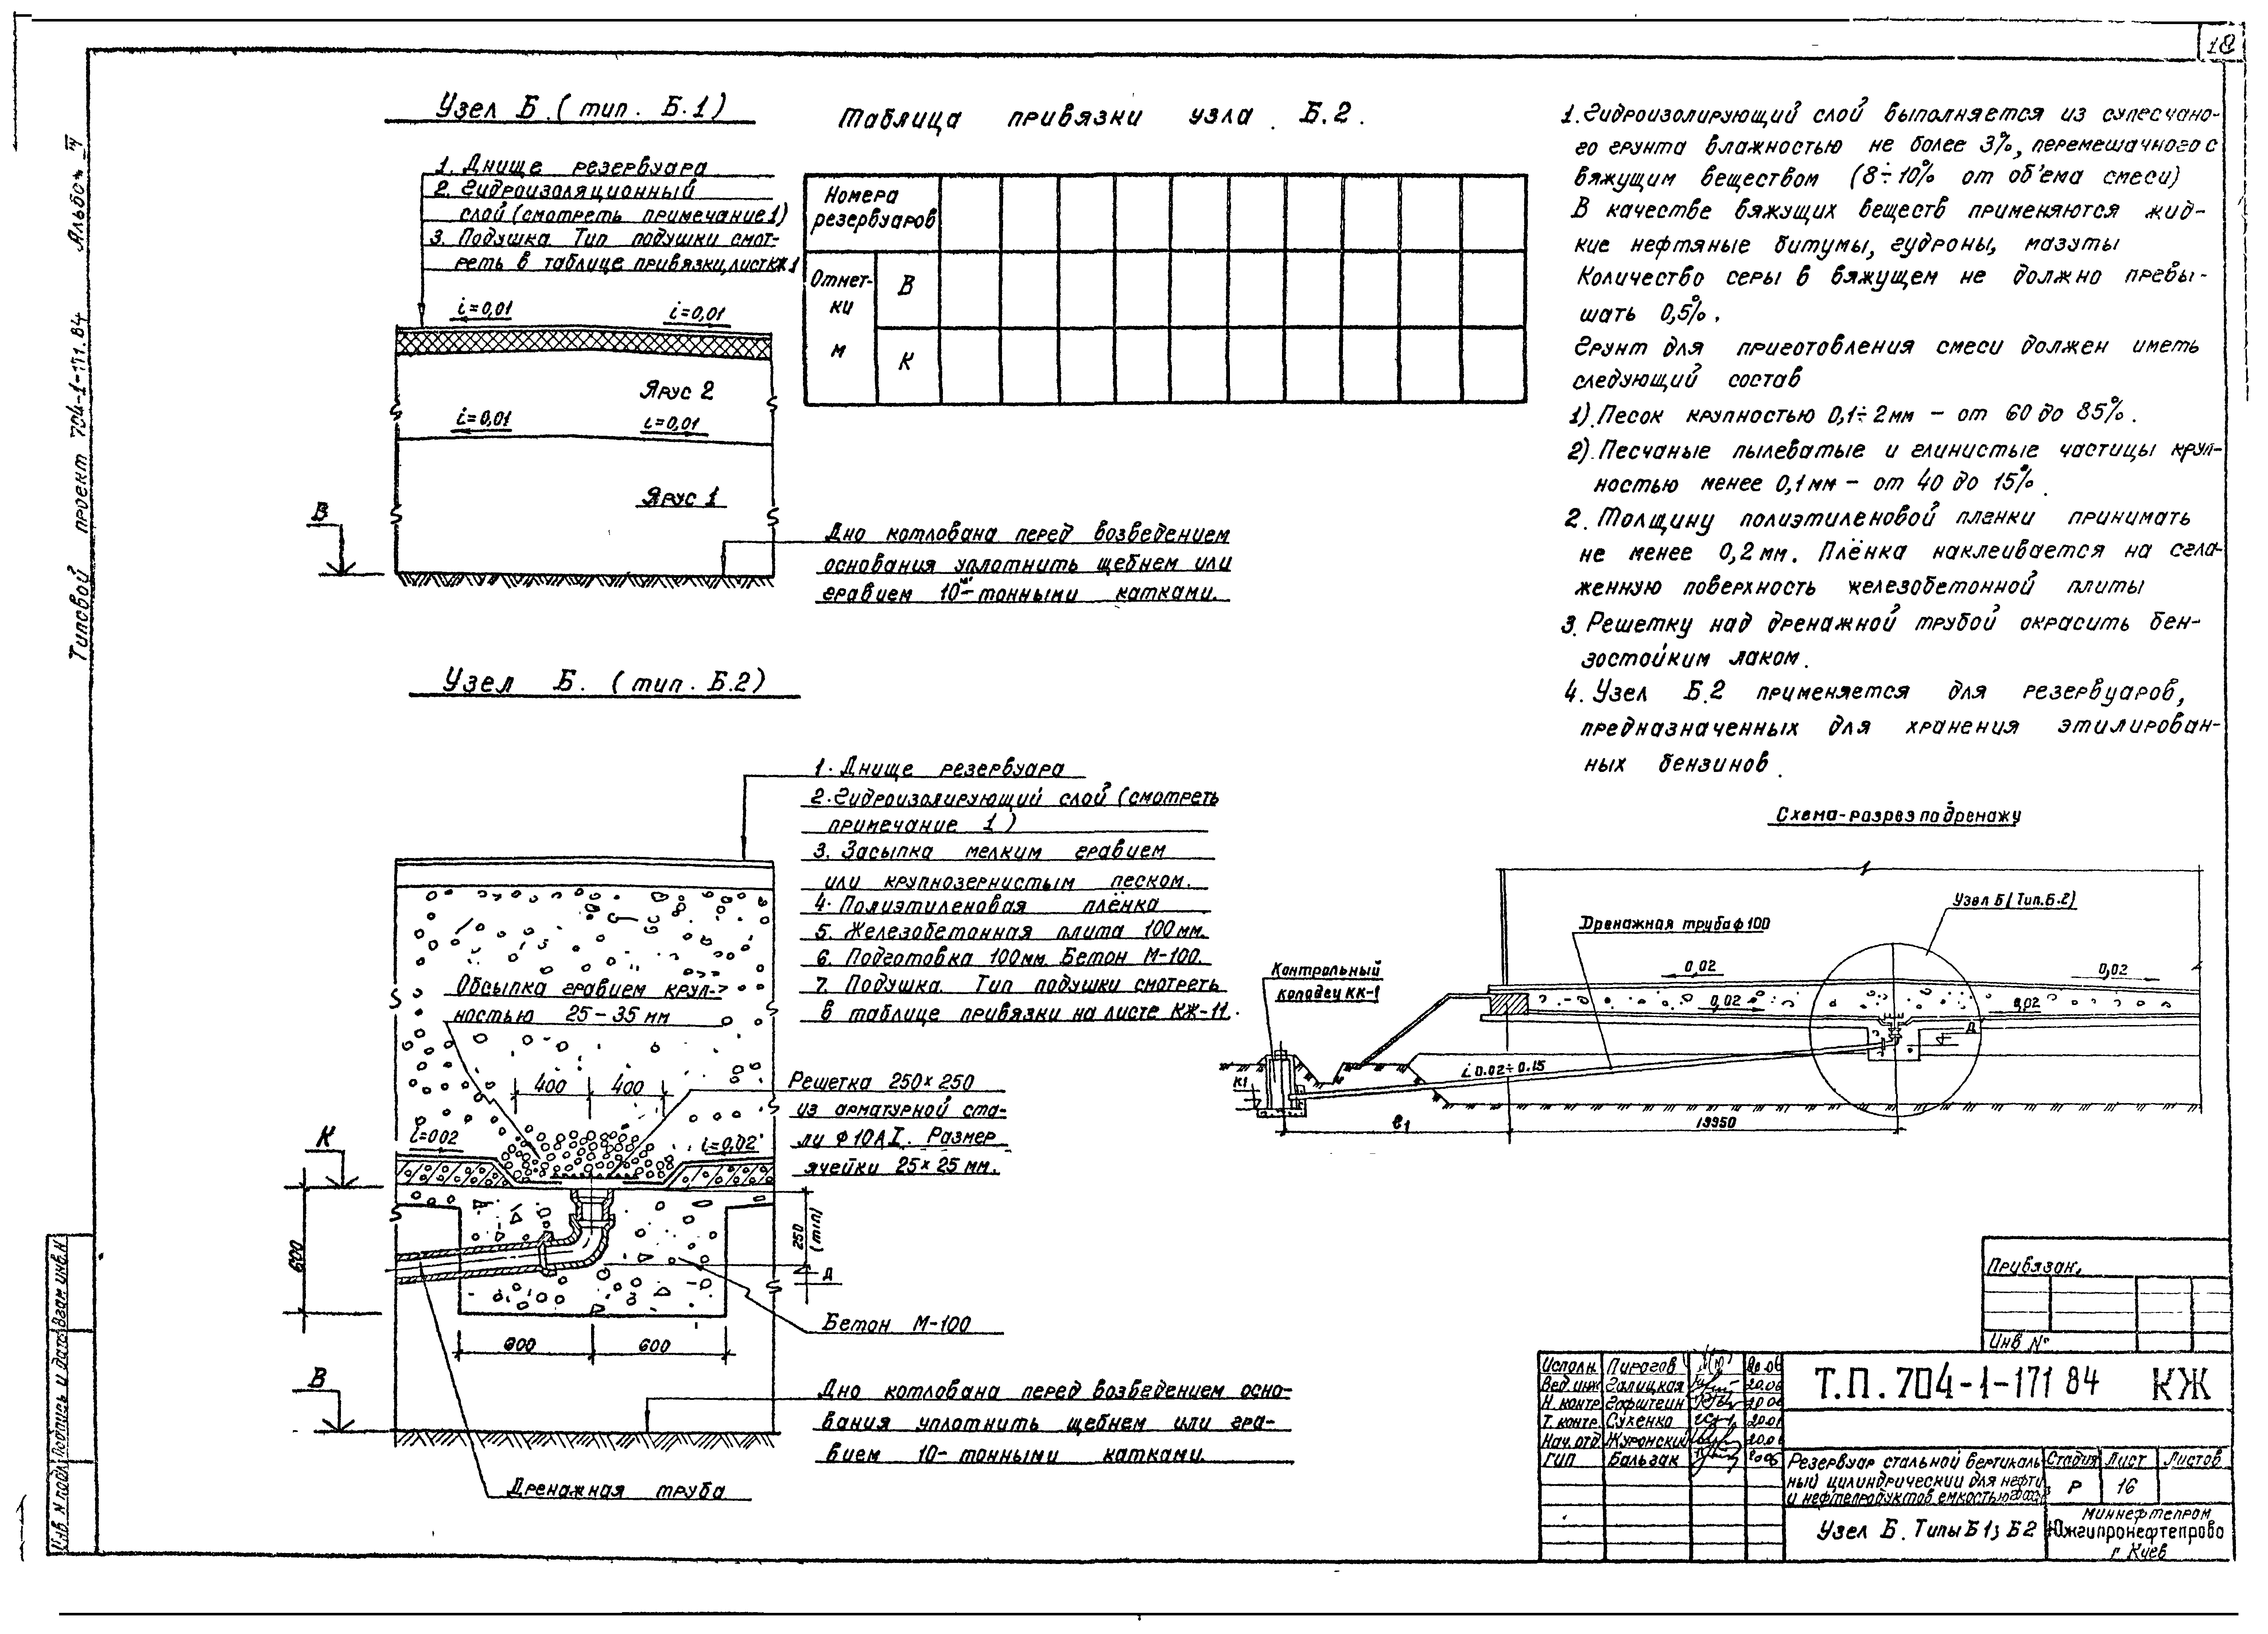 18
Альбом IV
Типовой проект 704-1-171.84
Узел Б. (тип. Б.1)
1. Днище резервуара
2. Гидроизоляционный
слой (смотреть примечание 1)
3. Подушка Тип подушки смот-
реть в таблице привязки, лист КЖ1
i=0,01
i=0,01
Ярус 2
i=0,01
i=0,01
Ярус 1
В
Дно котлована перед возведением
основания уплотнить щебнем или
гравием 10-тонными катками.
Таблица привязки узла Б.2.
Номера
резервуаров
Отмет-
ки
м
В
К
1. Гидроизолирующий слой выполняется из супесчано-
го грунта влажностью не более 3%, перемешачного с
вяжущим веществом (8÷10% от объема смеси)
В качестве вяжущих веществ применяются жид-
кие нефтяные битумы, гудроны, мазуты
Количество серы в вяжущем не должно превы-
шать 0,5%.
Грунт для приготовления смеси должен иметь
следующий состав
1). Песок крупностью 0,1÷2мм - от 60 до 85%.
2). Песчаные пылеватые и глинистые частицы круп-
ностью менее 0,1мм - от 40 до 15%.
2. Толщину полиэтиленовой пленки принимать
не менее 0,2мм. Плёнка наклеивается на сгла-
женную поверхность железобетонной плиты
3. Решетку над дренажной трубой окрасить бен-
зостойким лаком.
4. Узел Б.2 применяется для резервуаров,
предназначенных для хранения этилирован-
ных бензинов.
Узел Б. (тип. Б.2)
1. Днище резервуара
2. Гидроизолирующий слой (смотреть
примечание 1)
3. Засыпка мелким гравием
или крупнозернистым песком.
4. Полиэтиленовая плёнка
5. Железобетонная плита 100мм.
6. Подготовка 100мм Бетон М-100.
7. Подушка. Тип подушки смотреть
в таблице привязки на листе КЖ-11.
Обсыпка гравием круп-
ностью 25-35 мм
400
400
Решетка 250×250
из арматурной ста-
ли ф10АI. Размер
ячейки 25×25 мм.
К
i=002
i=0,02
600
250
(min)
Д
Бетон М-100
600
600
В
Дно котлована перед возведением осно-
вания уплотнить щебнем или гра-
вием 10-тонными катками.
Дренажная труба
Схема-разрез по дренажу
Узел Б (Тип.Б.2)
Дренажная труба ф100
Контрольный
колодец КК-1
0,02
0,02
0,02
0,02
Д
К1
i 0.02÷0.15
в1
19950
Привязан,
Инв №
Исполн. Пирогов 20.06
Вед.инж Галицкая 20.06
Н. контр. Гофштеин 20 06
Т. контр. Сухенко 20.06
Нач. отд. Журонский 20.06
ГИП Бальзак 2006
Т.П. 704-1-171 84 КЖ
Резервуар стальной вертикаль
ный цилиндрический для нефти
и нефтепродуктов емкостью
Стадия Лист Листов
Р 16
Узел Б. Типы Б1; Б2
Миннефтепром
Южгипронефтепрово
г Киев
Инв. N подл. Подпись и дата Взам инв.N